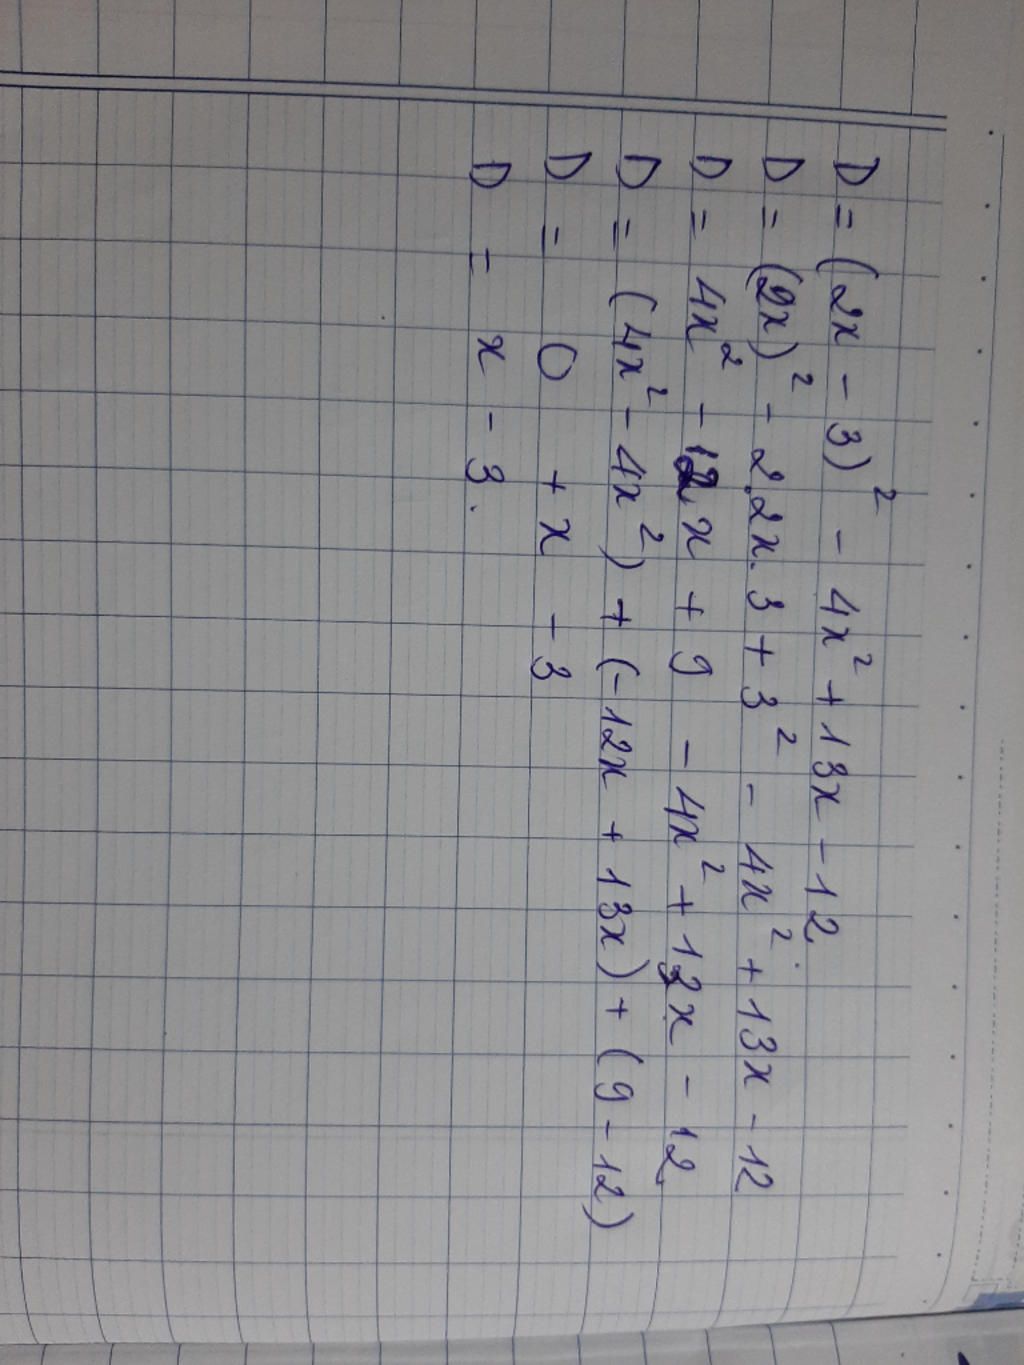 D = (2x - 3)² - 4x² + 13x - 12.
D = (2x)² - 2.2x.3 + 3² - 4x² + 13x - 12
D = 4x² - 12x + 9 - 4x² + 13x - 12
D = (4x² - 4x²) + (-12x + 13x) + (9 - 12)
D = 0 + x - 3
D = x - 3.